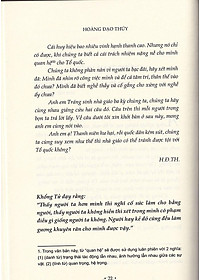 HOÀNG ĐẠO THÚY
Cái huy hiệu bao nhiêu vinh hạnh thanh cao. Nhưng nó chỉ
có được, khi chúng ta biết cả cái trách nhiệm nặng nề cho mình
quan hệ⁽¹⁾ cho Tổ quốc.
Chúng ta không phân nàn vì người ta bạc đãi, hãy xét mình
đã: Mình đã nhìn rõ công việc mình và để cả tâm trí, thân thể vào
đó chưa? Mình đã biết nghĩ thấy và cố gắng cho xứng đáng với
nghề chưa?
Anh em Tráng sinh nhà giáo ba kỳ chúng ta, chúng ta hãy
cùng nhau phác cùng câu hỏi câu đó. Trên thầy trò người học
trông ta trả lời lấy. Về câu dưới tôi xin khởi bàn ở sau này, mong
anh em cùng nói vào.
Anh em ạ! Thanh niên hư hại, rồi quốc dân kém sút, chúng
ta cùng suy xem như thế thì nhà giáo có thể tránh được tội với
Tổ quốc không?
H.Đ.TH.
Khổng Tử dạy rằng:
"Thấy người ta hơn mình thì nghĩ cố sức làm cho bằng
người, thấy người ta không hiền thì xét trong mình có phạm
điều gì giống người ta không. Người hay kẻ dở cũng đều làm
gương khuyên răn cho mình được cả."
1. Trong văn bản này, từ "quan hệ" sẽ được sử dụng bản phiên với 2 nghĩa:
(1) (danh từ) trạng thái tác động lẫn nhau, ảnh hưởng lẫn nhau giữa các sự
vật; (2) (tính từ) quan trọng, hệ trọng.
• 22 •